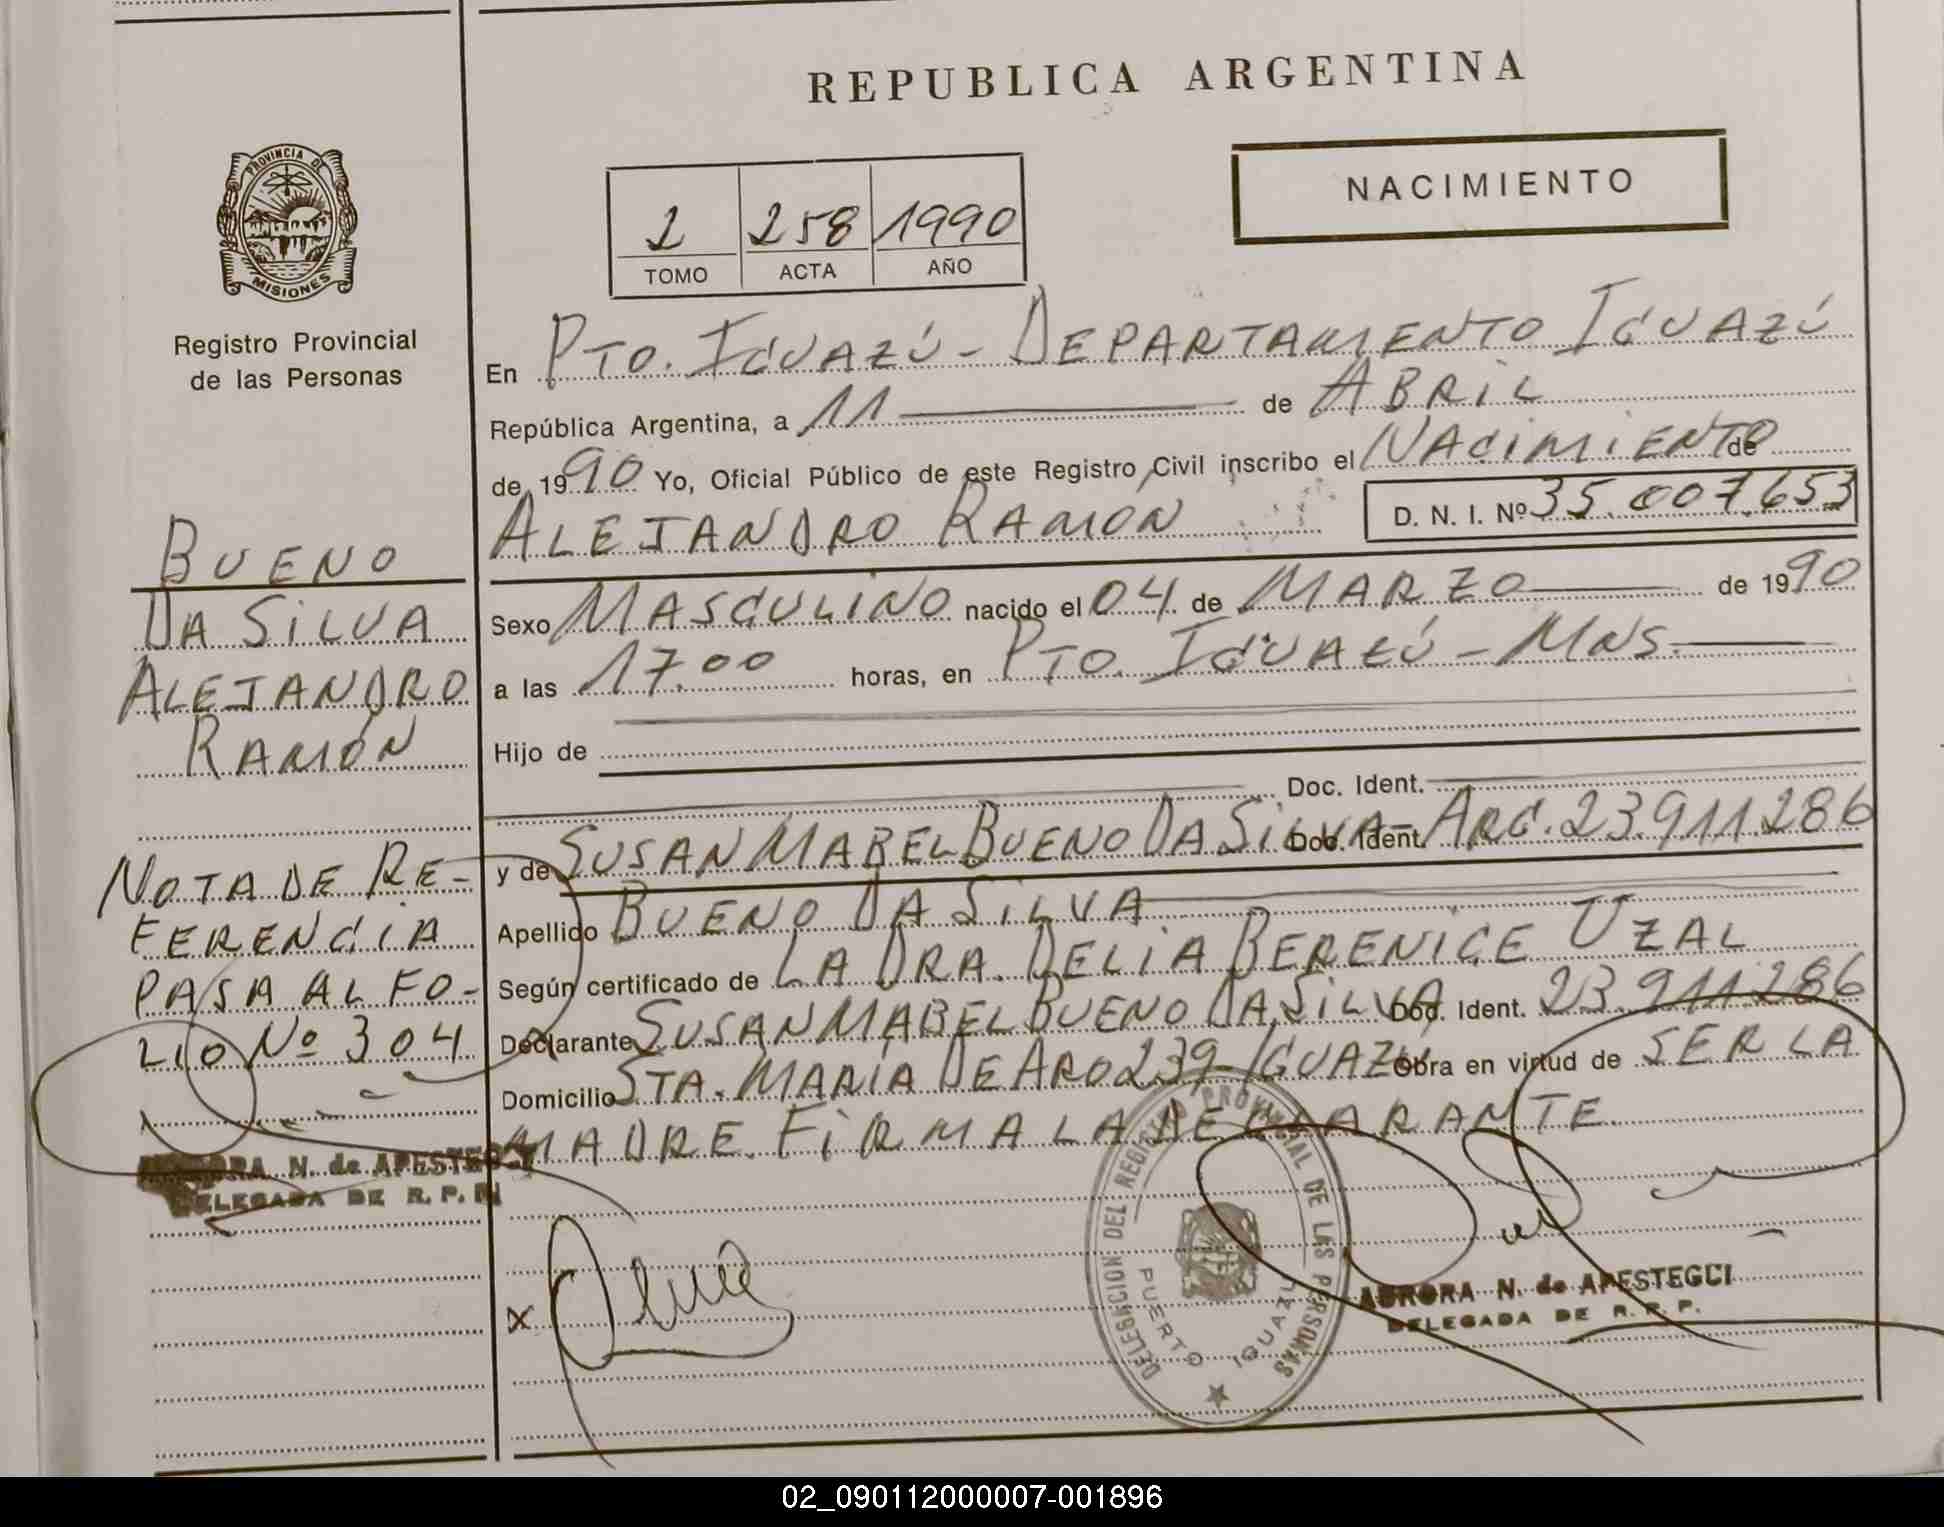 REPUBLICA ARGENTINA
NACIMIENTO
PROVINCIA DE
MISIONES
Registro Provincial
de las Personas
2 258 1990
TOMO ACTA AÑO
En PTO. IGUAZÚ - DEPARTAMENTO IGUAZÚ
República Argentina, a 11 de ABRIL
de 1990 Yo, Oficial Público de este Registro Civil inscribo el NACIMIENTO de
ALEJANDRO RAMÓN D. N. I. Nº 35.007.653
Sexo MASCULINO nacido el 04 de MARZO de 1990
a las 17.00 horas, en PTO. IGUAZÚ - MNS.
Hijo de
Doc. Ident.
y de SUSAN MABEL BUENO DA SILVA - Doc. Ident. ARG. 23.911.286
Apellido BUENO DA SILVA
Según certificado de LA DRA. DELIA BERENICE UZAL
Declarante SUSAN MABEL BUENO DA SILVA Doc. Ident. 23.911.286
Domicilio STA. MARÍA DE ARO 239 - IGUAZÚ Obra en virtud de SER LA
MADRE. FIRMA LA DECLARANTE.
BUENO
DA SILVA
ALEJANDRO
RAMÓN
NOTA DE RE-
FERENCIA
PASA AL FO-
LIO Nº 304
AURORA N. de APESTEGUI
DELEGADA DE R. P. P.
X
DELEGACION DEL REGISTRO PROVINCIAL DE LAS PERSONAS
PUERTO IGUAZU
AURORA N. de APESTEGUI
DELEGADA DE R. P. P.
02_090112000007-001896